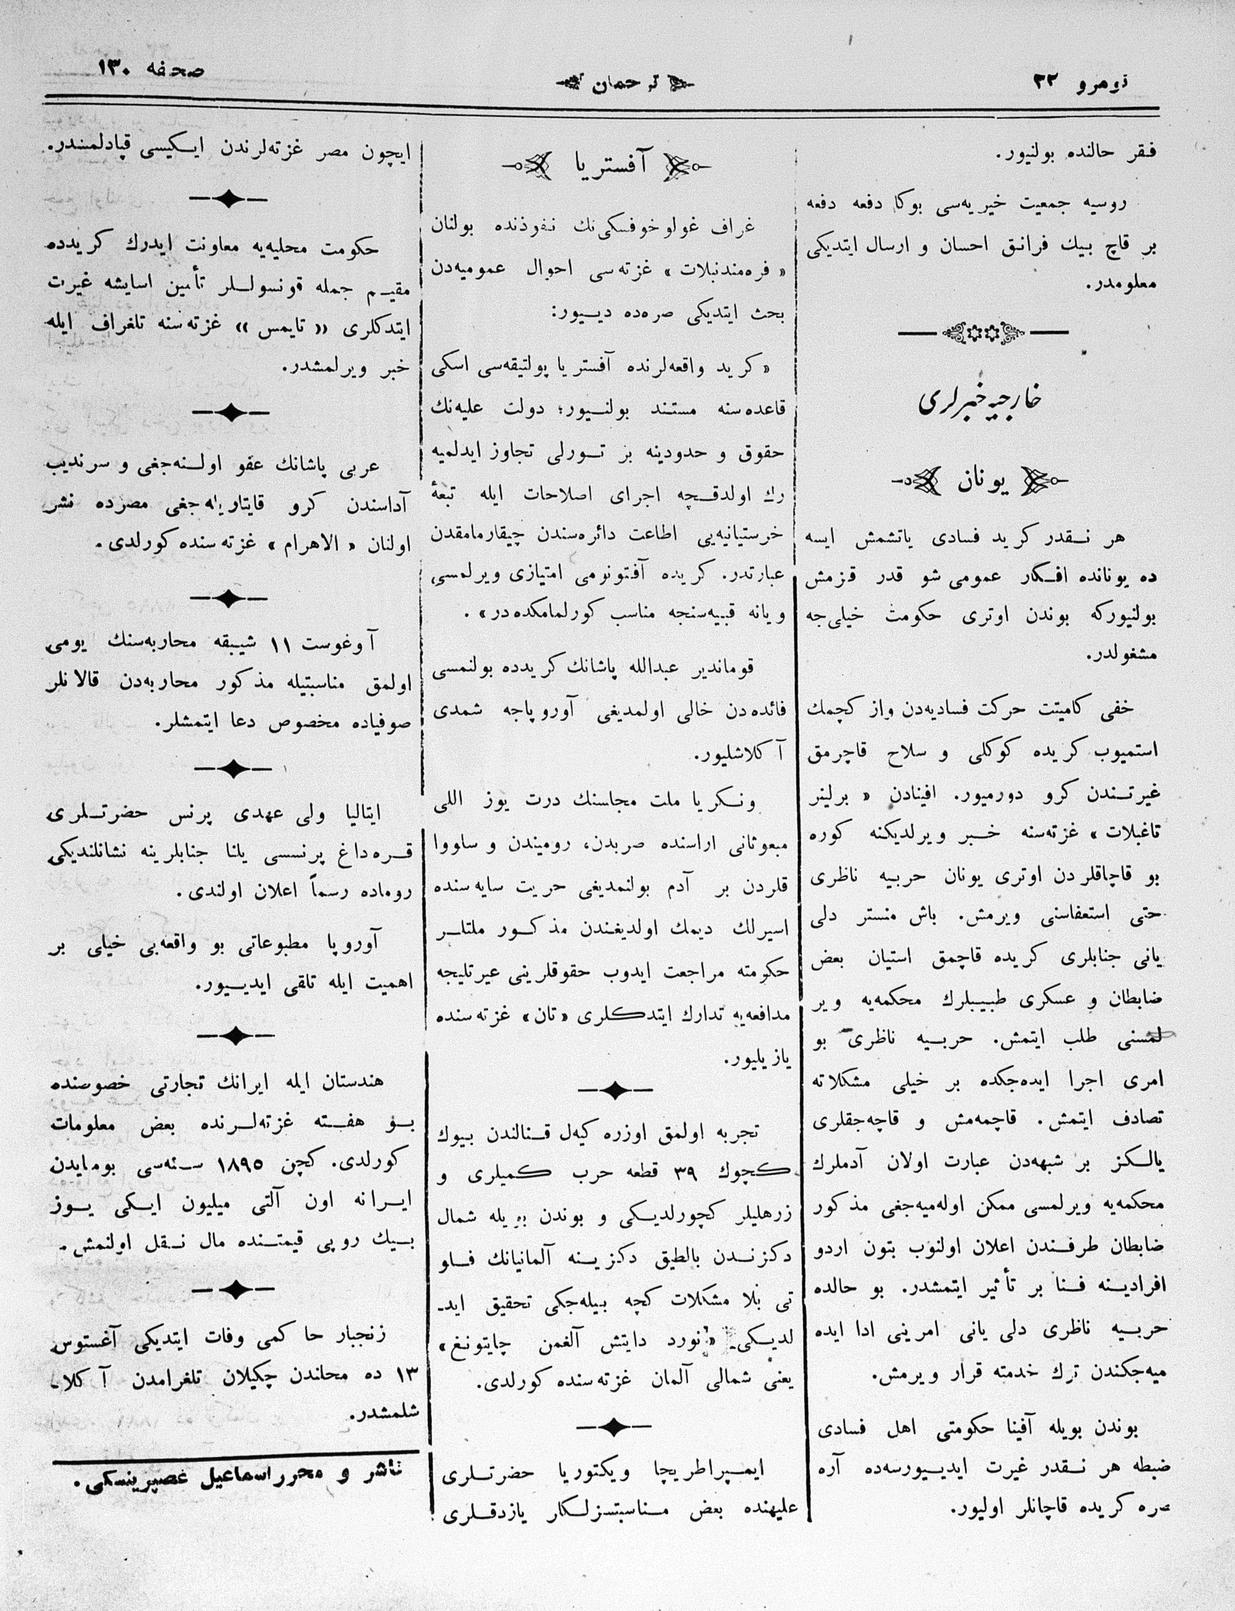 نومرو ٣٢
ترجمان
صحفه ١٣٠
فقر حالنده بولنیور.
روسیه جمعیت خیریه‌سی بوکا دفعه دفعه
بر قاچ بیك فرانق احسان و ارسال ایتدیکی
معلومدر.
خارجیه خبرلری
یونان
هر نـقدر کرید فسادی یاتشمش ایسه
ده یونانده افـکار عمومی شو قدر قزمش
بولنیورکه بوندن اوتری حکومت خیلی‌جه
مشغولدر.
خفی کامیتت حرکت فسادیه‌دن واز کچمك
استمیوب کریده کوکلی و سلاح قاچرمق
غیرتـندن کرو دورمیور. افینادن « برلینر
تاغبلات » غزته‌سنه خـبر ویرلدیکنه کوره
بو قاچاقلردن اوتری یونان حربیه ناظری
حتی استعفاسنی ویرمش. باش منستر دلی
یانی جنابلری کریده قاچمق استیان بعض
ضابطان و عسکری طبیبلرك محکمه‌یه ویر
لمسنی طلب ایتمش. حربـیه ناظری بو
امری اجرا ایده‌جکده بر خیلی مشکلاته
تصادف ایتمش. قاچمه‌مش و قاچه‌جقلری
یالـکز بر شبهه‌دن عبارت اولان آدملرك
محکمه‌یه ویرلمسی ممکن اوله‌میه‌جغی مذکور
ضابطان طرفـندن اعلان اولنوب بتون اردو
افرادیـنه فـنا بر تأثیر ایتمشدر. بو حالده
حربـیه ناظری دلی یانی امرینی ادا ایده
میه‌جکندن ترك خدمته قرار ویرمش.
بوندن بویله آفینا حکومتی اهل فسادی
ضبطه هر نـقدر غیرت ایدیـیورسه‌ده آره
صره کریده قاچانلر اولیور.
آفستریا
غراف غولوخوفسکی‌نك نفوذنده بولنان
« فره‌مندنبلات » غزته‌سی احوال عمومیه‌دن
بحث ایتدیکی صره‌ده دیـیور:
« کرید واقعه‌لرنده آفستریا پولتیقه‌سی اسکی
قاعده‌سنه مستند بولنـیور؛ دولت علیه‌نك
حقوق و حدودینه بر تـورلی تجاوز ایدلمیه
رك اولدقـچه اجرای اصلاحات ایله تبعهٔ
خرستیانیه‌یی اطاعت دائره‌سندن چیقارمامقدن
عبارتدر. کریده آفتونومی امتیازی ویرلمسی
ویانه قبیه‌سنجه مناسب کورلمامکده‌در» .
قوماندیر عبدالله پاشانك کریدده بولنمسی
فائده‌دن خالی اولمدیغی آوروپاجه شمدی
آکلاشلیور.
ونـکریا ملت مجلسنك درت یوز اللی
مبعوثانی اراسنده صربدن، رومیندن و ساووا
قلردن بر آدم بولنمدیغی حریت سایه‌سنده
اسیرلك دیمك اولدیغندن مذکـور ملتلـر
حکومته مراجعت ایدوب حقوقلرینی عیرتلیجه
مدافعه‌یه تدارك ایتدکلری «تان» غزته‌سنده
یازیلیور.
تجربه اولمق اوزره کیه‌ل قـنالندن بیوك
کچوك ٣٩ قطعه حرب کـمیلری و
زرهلیلر کچورلدیـکی و بوندن بویله شمال
دکزنـدن بالطیق دکزیـنه آلمانیانك فـلو
تی بلا مشکلات کچه بیله‌جکی تحقیق اید۔
لدیـکی «نورد دایتش آلغمن چایتونغ»
یعنی شمالی آلمان غزته‌سنده کورلدی.
ایمـپراطریچا ویکتوریا حضرتـلری
علیهنده بعض مـناسبتسزلـکلر یازدقـلری
ایچون مصر غزته‌لرندن ایـکیسی قپادلمشدر.
حکومت محلیه‌یه معاونت ایدرك کریدده
مقیـم جمله قونسولـلر تأمین اسایشه غیرت
ایتدکلری «تایمس» غزته‌سنه تلغراف ایله
خبر ویرلمشدر.
عربی پاشانك عفو اولـنه‌جغی و سرندیب
آداسندن کرو قایتاریله‌جغی مصرده نشر
اولنان « الاهرام » غزته‌سنده کورلدی.
آوغوست ١١ شیـبقه محاربه‌سنك یومی
اولمق مناسبتیله مذکور محاربه‌دن قالانلر
صوفیاده مخصوص دعا ایتمشلر.
ایتالیا ولی عهدی پرنس حضرتـلری
قـره‌داغ پرنسسی یلنا جنابلرینه نشانلندیکی
روماده رسماً اعلان اولندی.
آوروپا مطبوعاتی بو واقعه‌یی خیلی بر
اهمیت ایله تلقی ایدیـیور.
هندستان ایله ایرانك تجارتی خصوصنده
بـو هفـته غزته‌لـرنده بعض معلومات
کورلدی. کچن ١٨٩٥ سـنه‌سی بومبایدن
ایـرانه اون آلتی میلیون ایـکی یـوز
بـیك روپی قیمتـنده مال نـقل اولنمش.
زنجبار حاکمی وفات ایتدیکی آغستوس
١٣ ده محلندن چکیلان تلغرامدن آکلا۔
شلمشدر.
ناشر و محرر اسماعیل غصپرینسکی.